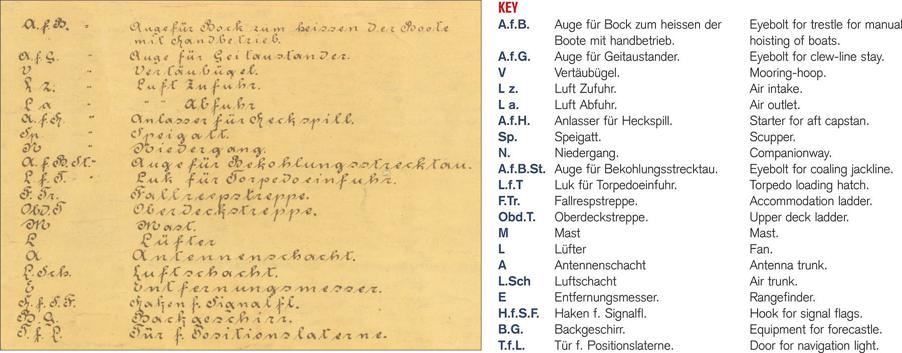 A.f.B. " Auge für Bock zum heissen der Boote
mit Handbetrieb.
A.f.G. " Auge für Geitaustander.
V " Vertäubügel.
L z. " Luft Zufuhr.
L a " " " Abfuhr
A.f.H. " Anlasser für Heckspill.
Sp. " Speigatt.
N " Niedergang.
A.f.B.St. " Auge für Bekohlungsstrecktau.
L.f.T. " Luk für Torpedoeinfuhr.
F.Tr. Fallrepstreppe.
Obd.T Oberdeckstreppe.
M Mast.
L Lüfter
A Antennenschacht.
L.Sch. Luftschacht.
E Entfernungsmesser.
H.f.S.F. Haken f. Signalfl.
B.G. Backgeschirr.
T.f.L. Tür f. Positionslaterne.
KEY
A.f.B. Auge für Bock zum heissen der Eyebolt for trestle for manual
Boote mit handbetrieb. hoisting of boats.
A.f.G. Auge für Geitaustander. Eyebolt for clew-line stay.
V Vertäubügel. Mooring-hoop.
L z. Luft Zufuhr. Air intake.
L a. Luft Abfuhr. Air outlet.
A.f.H. Anlasser für Heckspill. Starter for aft capstan.
Sp. Speigatt. Scupper.
N. Niedergang. Companionway.
A.f.B.St. Auge für Bekohlungsstrecktau. Eyebolt for coaling jackline.
L.f.T Luk für Torpedoeinfuhr. Torpedo loading hatch.
F.Tr. Fallrespstreppe. Accommodation ladder.
Obd.T. Oberdeckstreppe. Upper deck ladder.
M Mast Mast.
L Lüfter Fan.
A Antennenschacht Antenna trunk.
L.Sch Luftschacht Air trunk.
E Entfernungsmesser. Rangefinder.
H.f.S.F. Haken f. Signalfl. Hook for signal flags.
B.G. Backgeschirr. Equipment for forecastle.
T.f.L. Tür f. Positionslaterne. Door for navigation light.